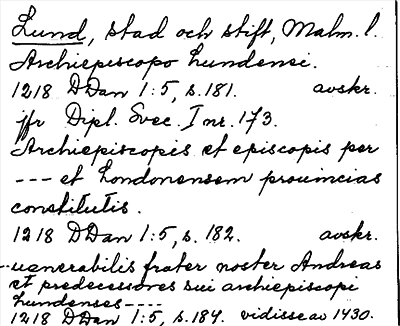 Lund, stad och stift, Malm. l.
Archiepiscopo Lundensi.
1218 DDan 1:5, s. 181. avskr.
jfr Dipl. Svec. I nr. 173.
Archiepiscopis et episcopis per
--- et Londonensem prouincias
constitutis.
1218 DDan 1:5, s. 182. avskr.
--uenerabilis frater noster Andreas
et predecessores sui archiepiscopi
Lundenses----
1218 DDan 1:5, s. 184. vidisse av 1430.